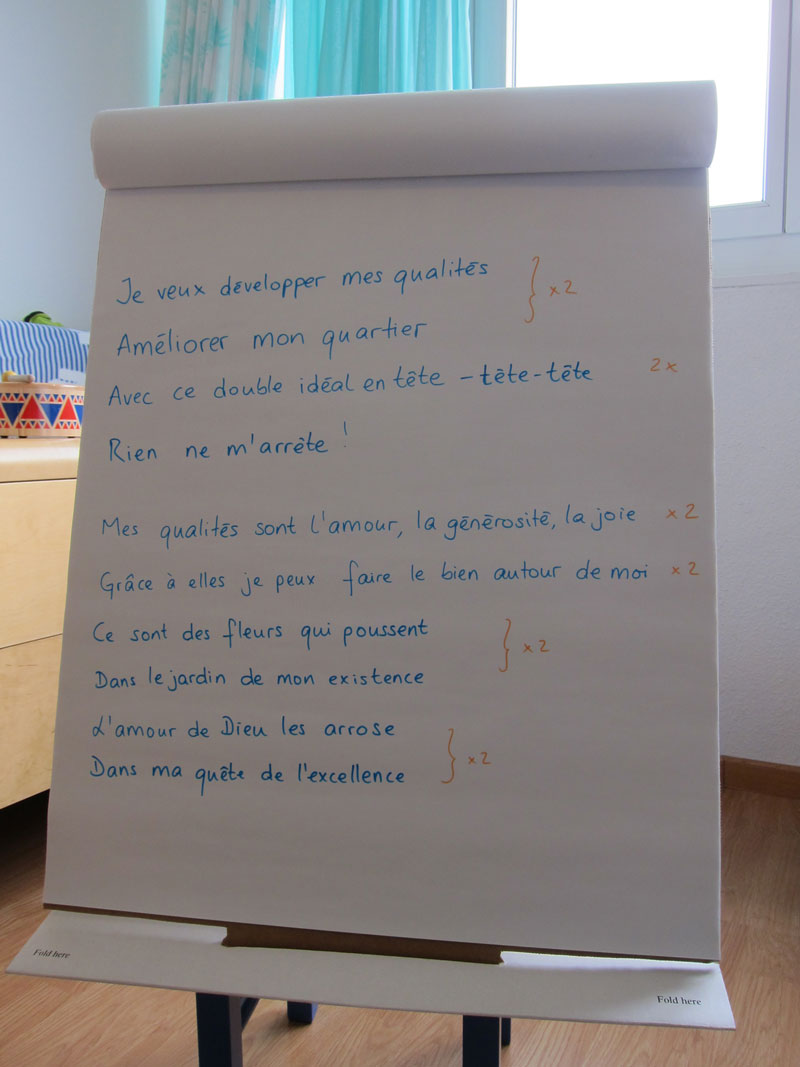 Je veux développer mes qualités } x2
Améliorer mon quartier
Avec ce double idéal en tête - tête - tête 2x
Rien ne m'arrête !
Mes qualités sont l'amour, la générosité, la joie x2
Grâce à elles je peux faire le bien autour de moi x2
Ce sont des fleurs qui poussent } x2
Dans le jardin de mon existence
L'amour de Dieu les arrose } x2
Dans ma quête de l'excellence
Fold here
Fold here